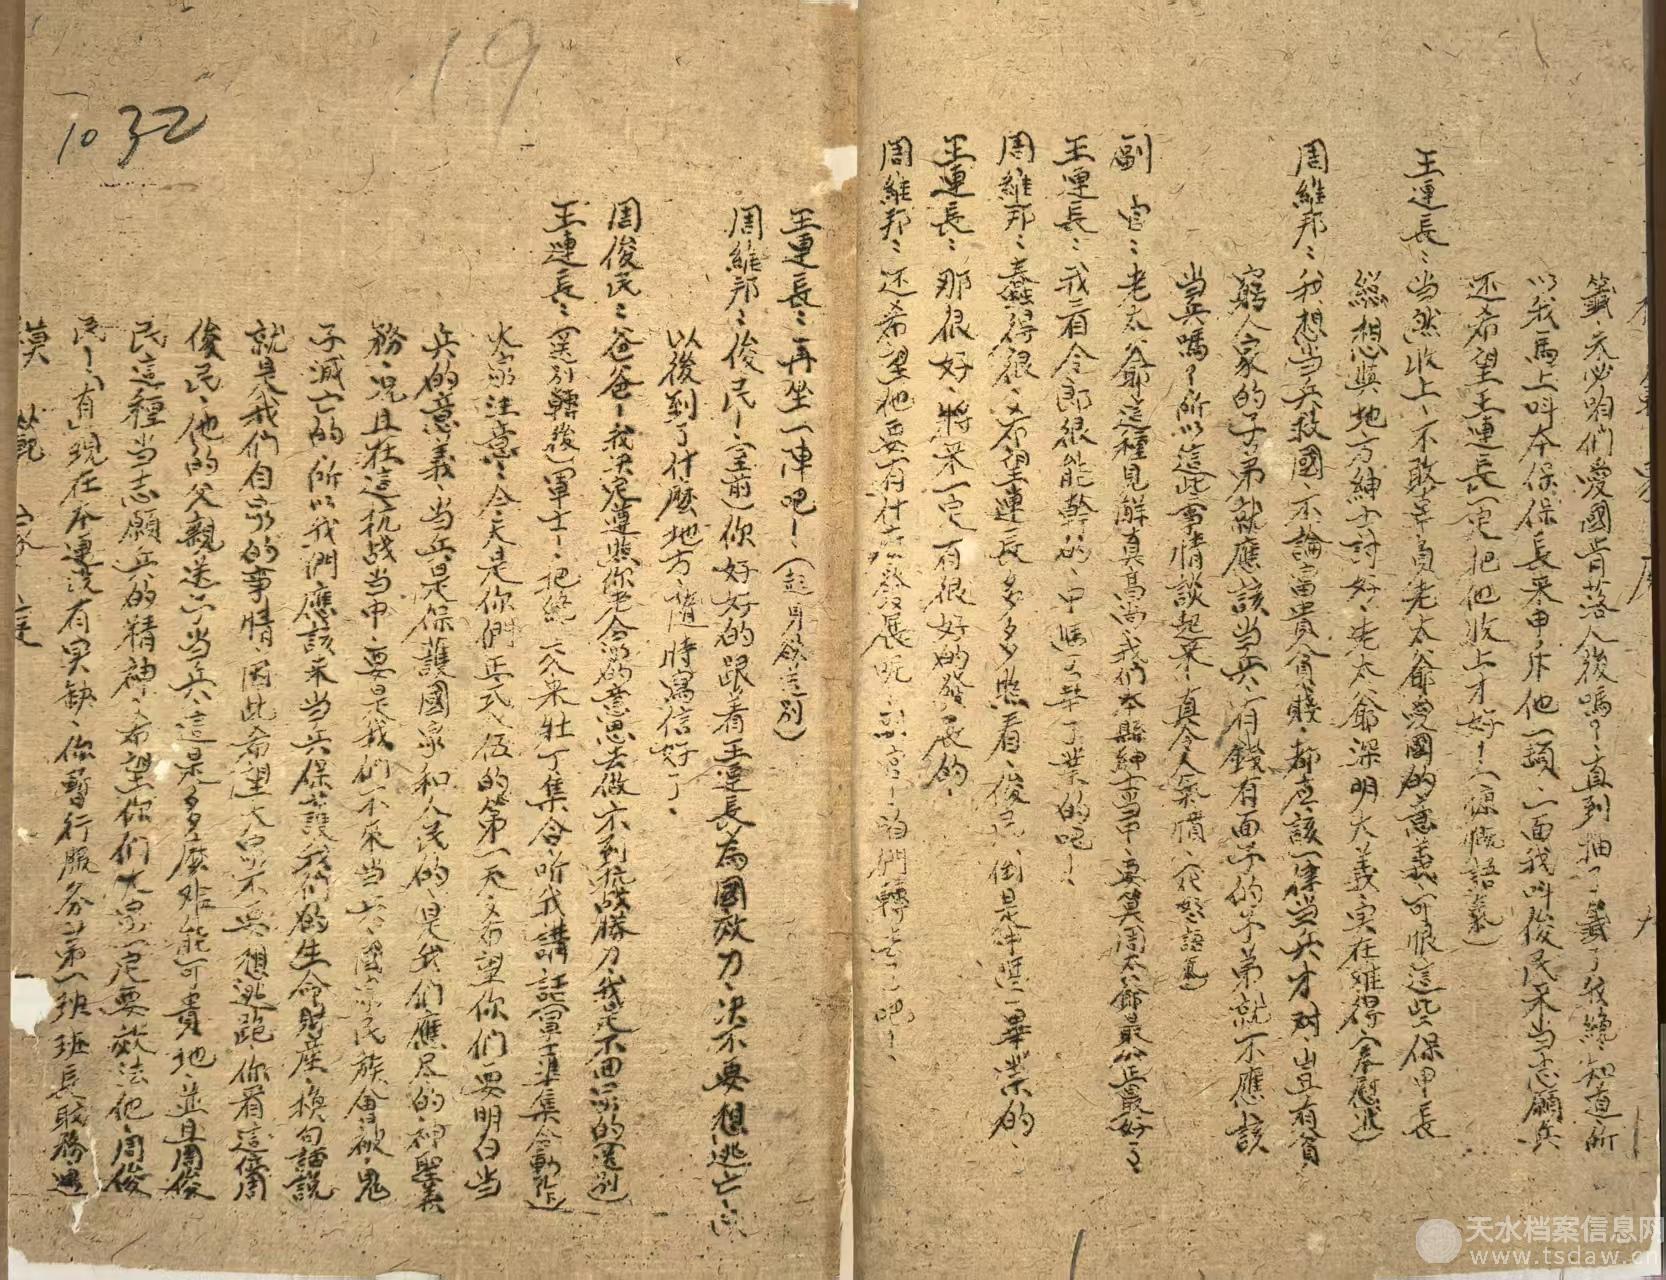 籤、未必咱們愛國肯落人後嗎?直到抽了籤了我纔知道所
以我馬上叫本保保長來申斥他一頭、一面我叫俊民來当志願兵
还希望王連長一定把他收上才好!(慷慨語氣)
王連長:当然收上、不敢辜負老太爺愛國的意義、可恨這些保甲長
總想與地方紳士討好、老太爺深明大義、实在难得(奉慰狀)
周維邦:我想当兵救國、不論富貴貧賤、都应該一律当兵才对、豈有貧
窮人家的子弟就應該当兵、有錢有面子的子弟就不應該
当兵嗎?所以這些事情談起來、真令人氣憤、
副官:老太爺這種見解真高尚我們本縣紳士当中、要算周太爺最公正最好了、
王連長:我看令郎很能幹的、中
業的吧!
周維邦:蠢得很、希望連長多多照看、俊民倒是中學畢業的、
王連長:那很好、將來一定有很好的發展的、
周維邦:还希望他要有什
發展呢、副官!咱們轉去了吧!、
19
1032
王連長:再坐一陣吧!(起身欲送别)
周維邦:俊民!(室前)你好好的跟着王連長為國效力、决不要想逃亡、
以後到了什麼地方、隨時寫信好了、
周俊民:爸爸!我决定遵照你老人家的意思去做、不到抗战勝利、我是不回家的(送别)
王連長:(送别轉後)軍士!把
壯丁集合听我講話(軍士準集合動作)
大家注意:今天是你們正式入伍的第一天、希望你们要明白当
兵的意義、当兵是保護國家和人民的、是我们應尽的神聖義
務、况且在這抗战当中、要是我们不來当兵、國家民族會被鬼
子滅亡的、所以我们應該來当兵保護我们的生命財產、換句話說
就是我们自家的事情、因此希望大家不要想逃跑、你看這個周
俊民、他的父親送〻当兵、這是多麼难能可貴地、並且周俊
民這種当志願兵的精神、希望你们大家一定要效法他、周俊
民!(有)現在本連没有实缺、你暫行服务第一班班長職務
模 範 家 庭
天水档案信息网
www.tsdaw.cn